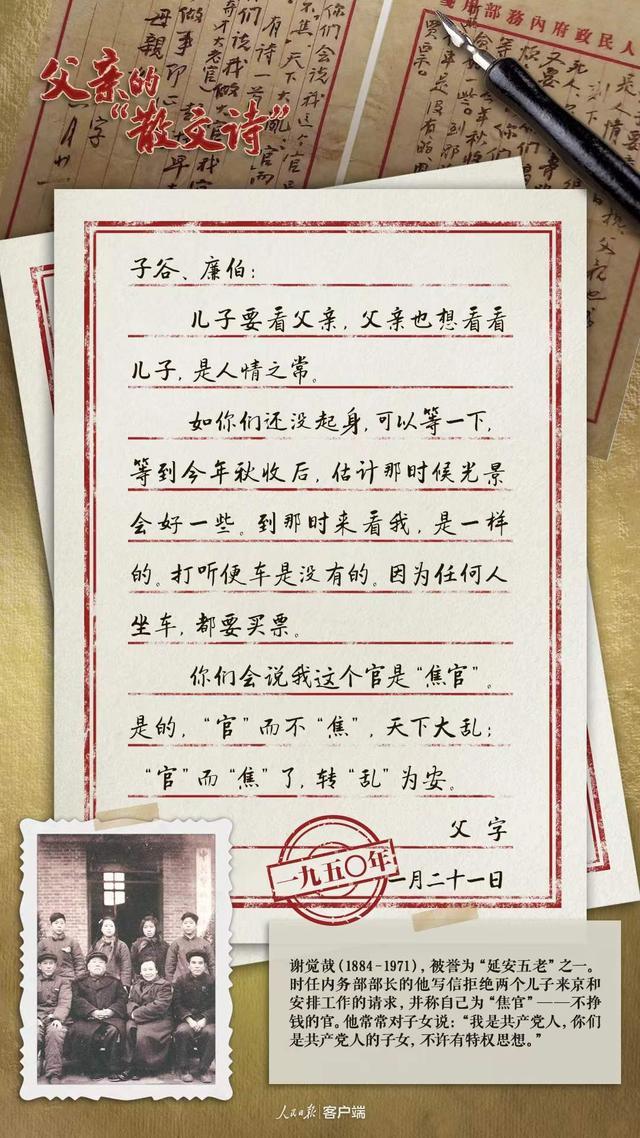 父亲的
“散文诗”
子谷、廉伯：
儿子要看父亲，父亲也想看看
儿子，是人情之常。
如你们还没起身，可以等一下，
等到今年秋收后，估计那时候光景
会好一些。到那时来看我，是一样
的。打听便车是没有的。因为任何人
坐车，都要买票。
你们会说我这个官是“焦官”。
是的，“官”而不“焦”，天下大乱；
“官”而“焦”了，转“乱”为安。
父字
一九五〇年
一月二十一日
谢觉哉（1884-1971），被誉为“延安五老”之一。
时任内务部部长的他写信拒绝两个儿子来京和
安排工作的请求，并称自己为“焦官”——不挣
钱的官。他常常对子女说：“我是共产党人，你们
是共产党人的子女，不许有特权思想。”
人民日报 客户端